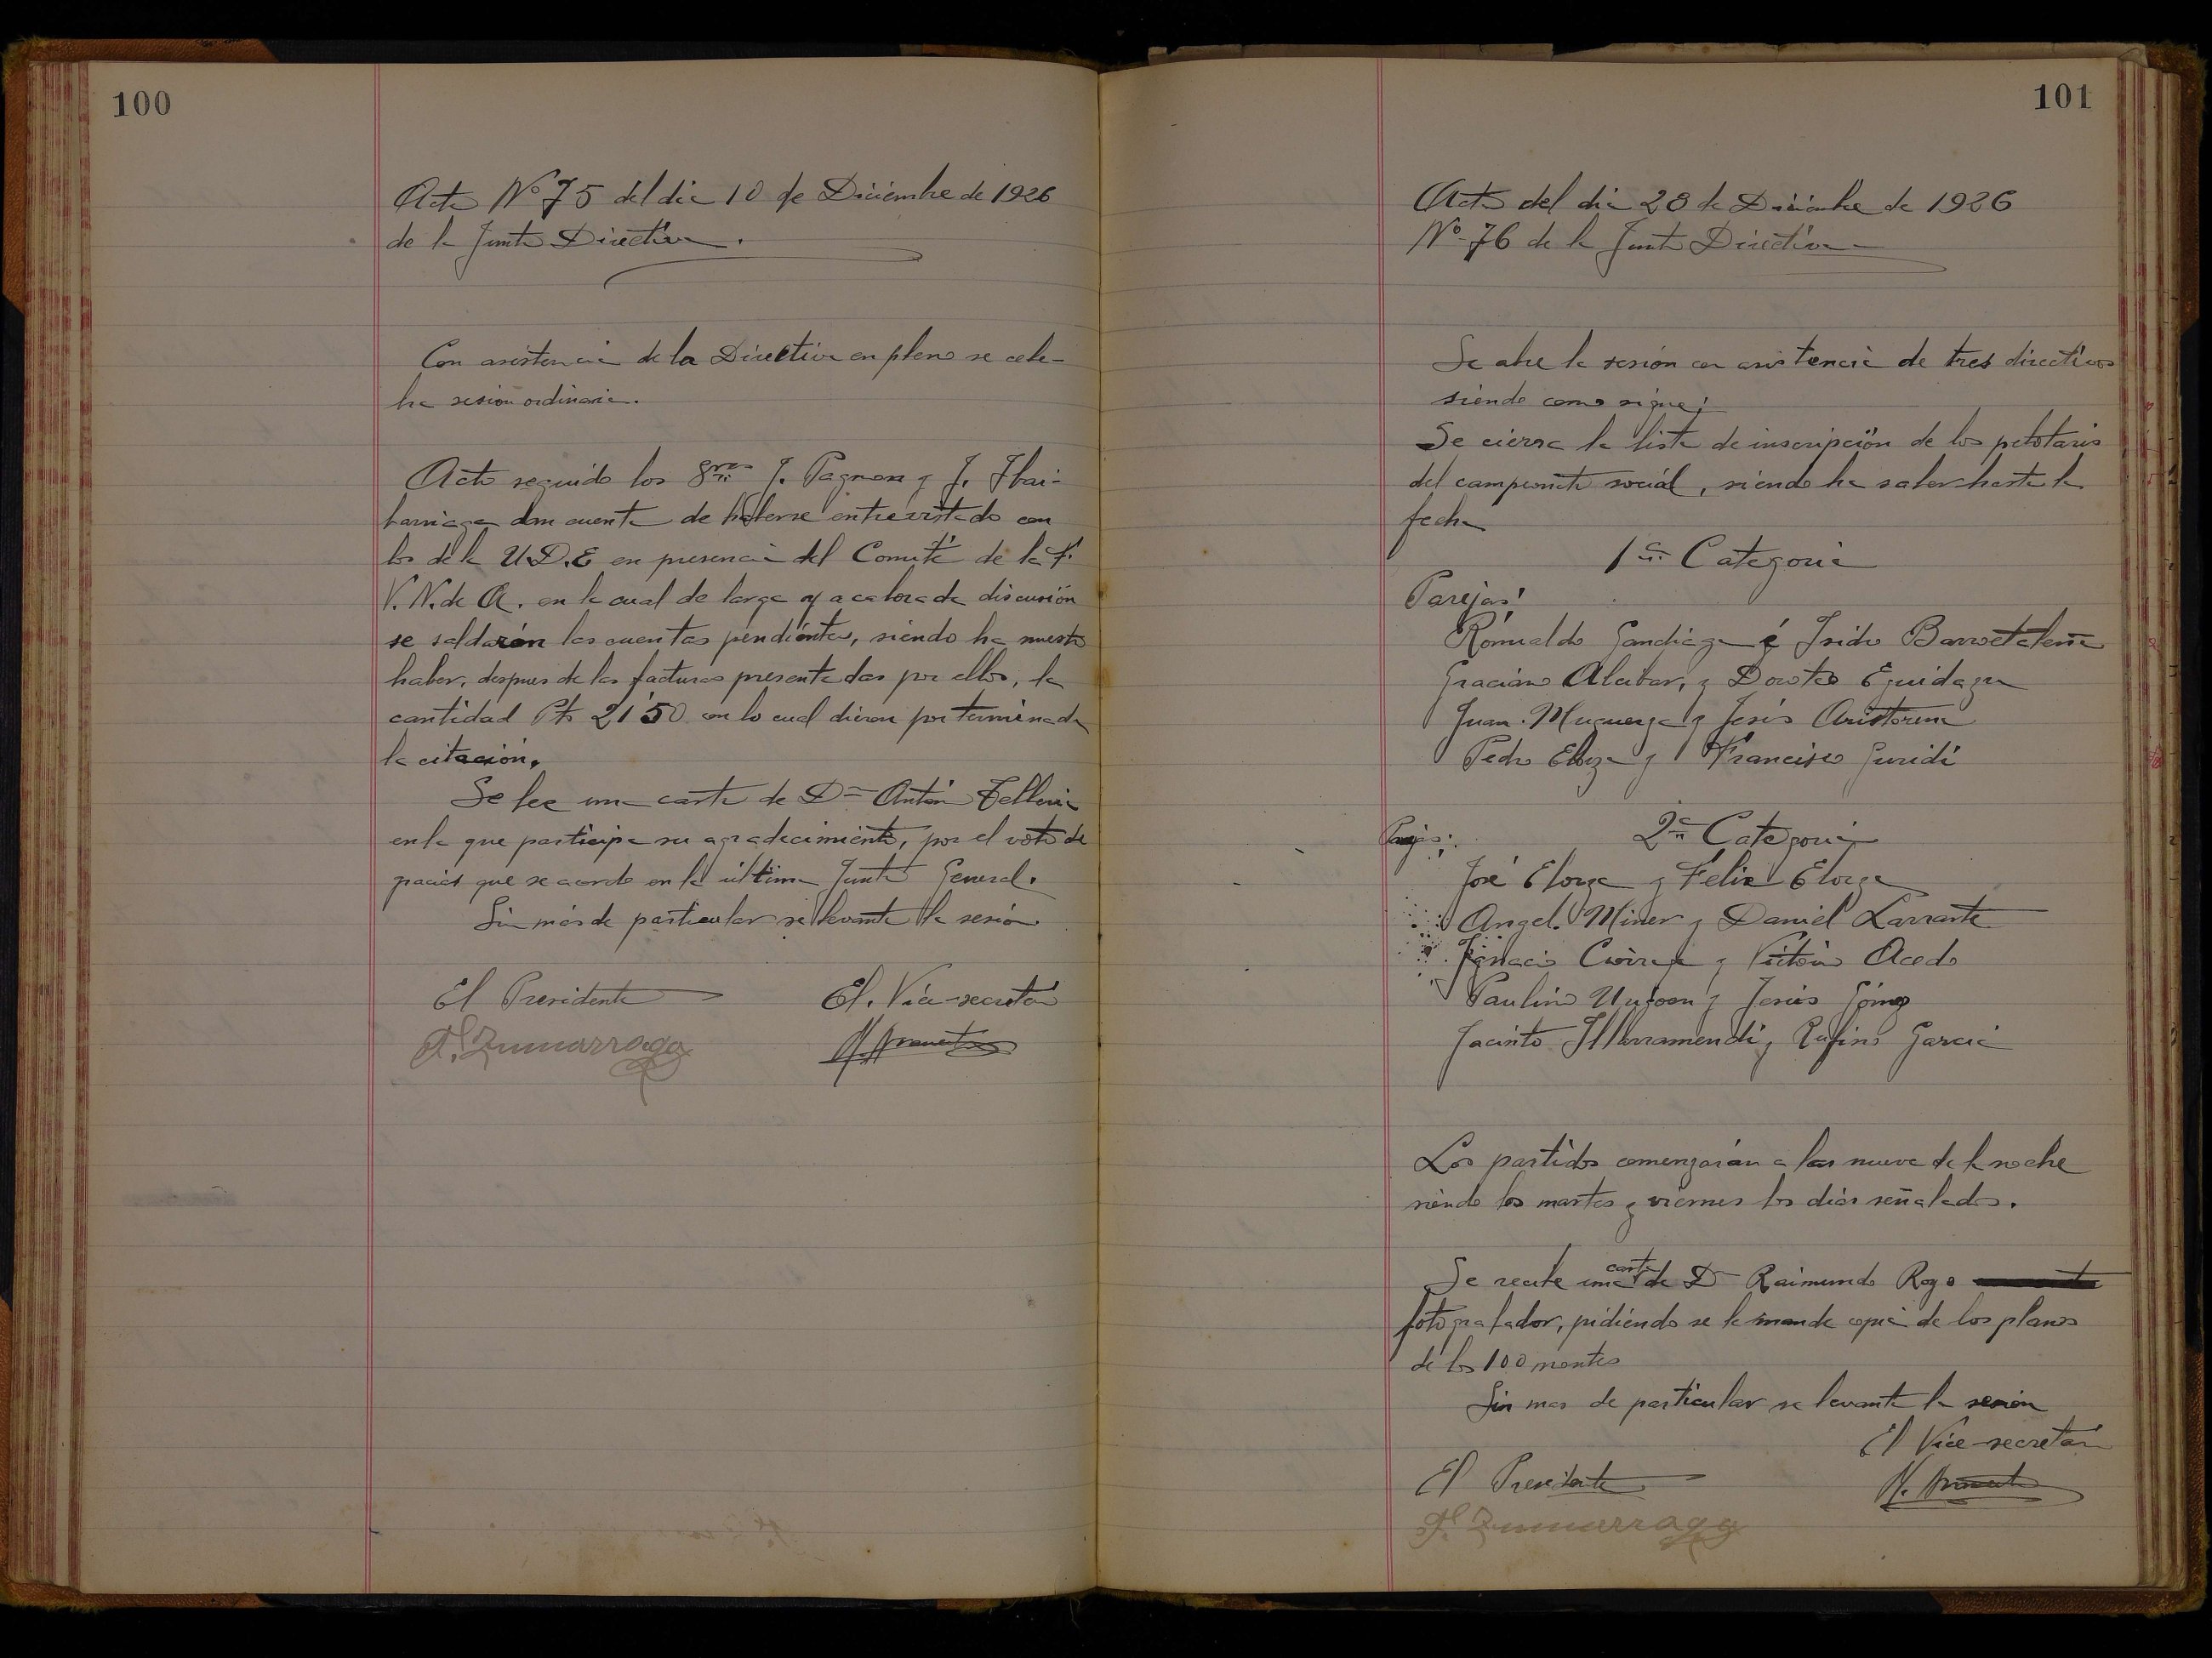 100
Acta Nº 75 del dia 10 de Diciembre de 1926
de la Junta Directiva.
Con asistencia de la Directiva en pleno se cele-
bra sesion ordinaria.
Acto seguido los Sres J. Pagnon y J. Ibai-
barriaga dan cuenta de haberse entrevistado con
los de la U.D.E en presencia del Comité de la F.
V. N. de A. en la cual de larga y acalorada discusión
se saldarón las cuentas pendientes, siendo ha nuestro
haber, despues de las facturas presentadas por ellos, la
cantidad Pts 21'50 con lo cual dieron por terminada
la citación.
Se lee una carta de Dn Antón Telleria
en la que participa su agradecimiento, por el voto de
gracias que se acordo en la última Junta General.
Sin más de particular se levanta la sesión
El Presidente El Vice-secretario
Zumarraga
101
Acta del dia 28 de Diciembre de 1926
Nº 76 de la Junta Directiva
Se abre la sesión con asistencia de tres directivos
siendo como sigue;
Se cierra la lista de inscripción de los pelotaris
del campeonato social, siendo ha saber hasta la
fecha
1ª Categoria
Parejas:
Romualdo Gandiaga é Isidro Barroetabeña
Graciano Alcibar, y Doroteo Eguidazu
Juan Muguerza y Jesús Aristorena
Pedro Eloza y Francisco Guridi
2ª Categoria
Parejas:
José Elorza y Felix Elorza
Angel Miner y Daniel Larrarte
Ignacio y Victorio Acedo
Paulino y Jesús Gómez
Jacinto Illarramendi y Rufino Garcia
Los partidos comenzarán a las nueve de la noche
siendo los martes y viernes los dias señalados.
Se recibe una carta de Dn Raimundo Rojo
fotograbador, pidiendo se le mande copia de los planos
de los 100 montes
Sin mas de particular se levanta la sesión
El Vice-secretario
El Presidente
Zumarraga